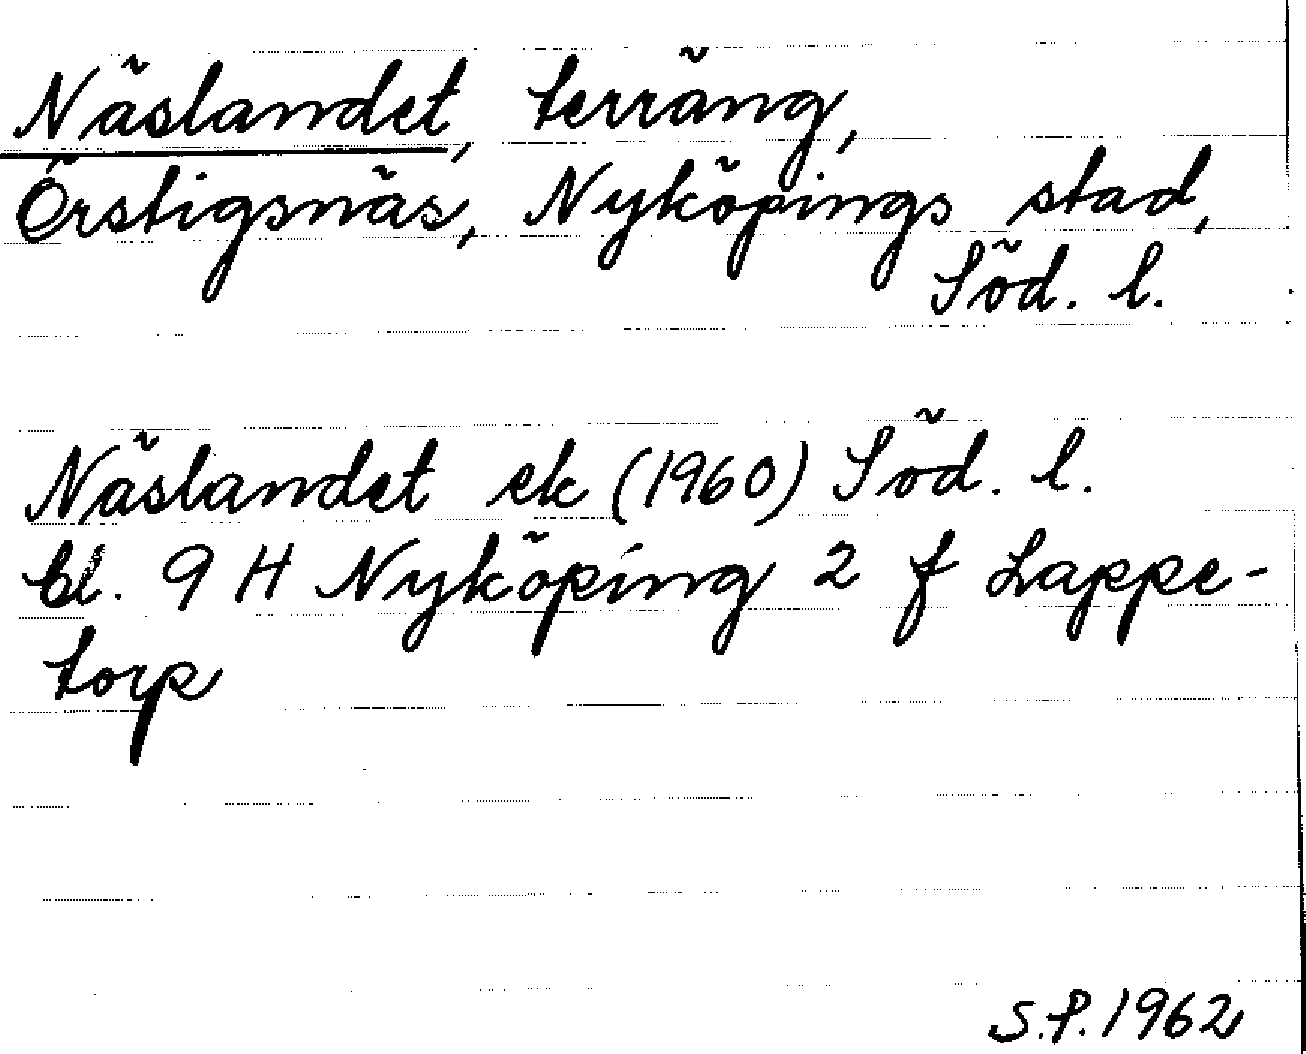 Näslandet, terräng,
Örstigsnäs, Nyköpings stad,
Söd. l.
Näslandet ek (1960) Söd. l.
bl. 9 H Nyköping 2 f Lappe-
torp
S.P. 1962